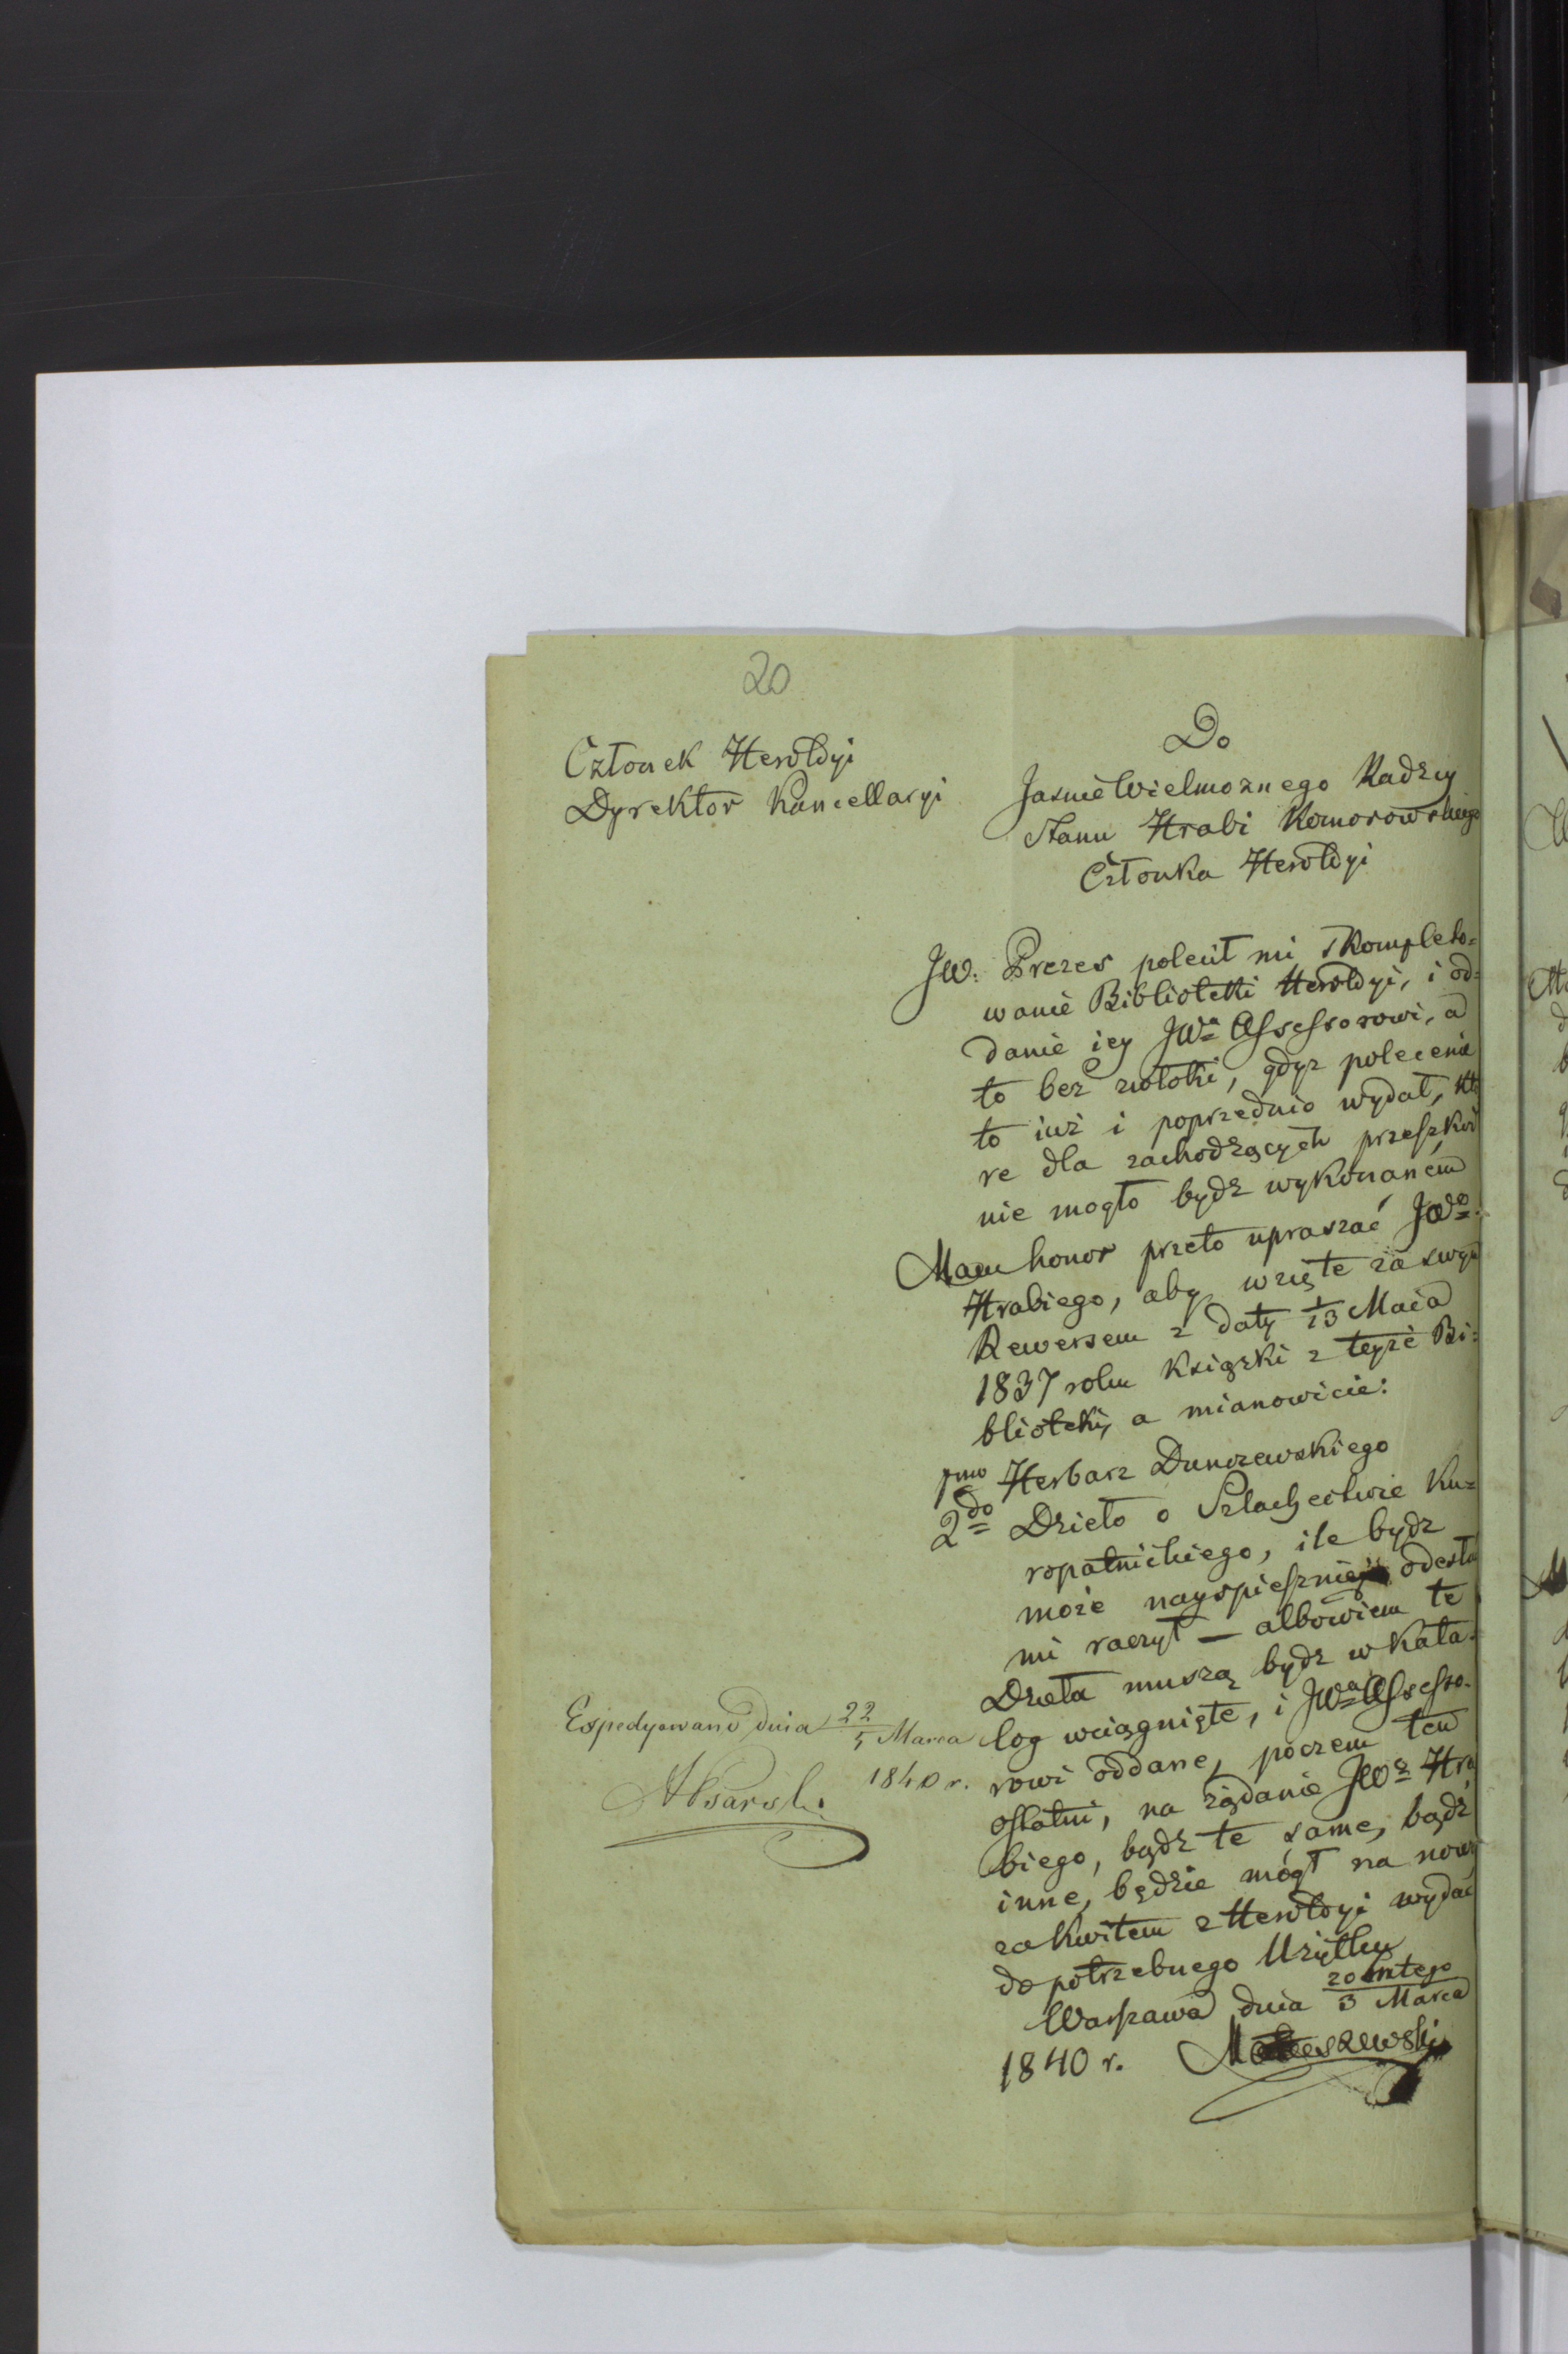 20
Członek Heroldyi
Dyrektor Kancellaryi
Do
Jasnie Wielmożnego Radzcy
Stanu Hrabi Komorowskiego
Członka Heroldyi
JW. Prezes polecił mi skompleto=
wanie Biblioteki Heroldyi, i od=
danie iey JWu Assessorowi, a
to bez zwłoki, gdyż polecenie
to iuż i poprzednio wydał, któ
re dla zachodzących przeszkód
nie mogło bydz wykonaném
Mam honor przeto upraszać JWo
Hrabiego, aby wzięte za swym
Rewersem z daty 1/13 Maia
1837 roku książki z teyże Bi=
blioteki, a mianowicie:
1mo Herbarz Dunczewskiego
2do Dzieło o Szlachectwie Ku=
ropatnickiego, ile bydz
może nayspieszniej odesła
mi raczył — albowiem te
Dzieła muszą bydz w Kata=
log wciągnięte, i JWu Assesso=
rowi oddane, poczem ten
ostatni, na żądanie JWo Hra
biego, bądz te same, bądz
inne, będzie mógł na nowo
za kwitem z Heroldyi wydać
do potrzebnego Użytku
Warszawa dnia 20 Lutego/3 Marca
1840 r.
Expedyowano dnia 22/5 Marca
1840 r.